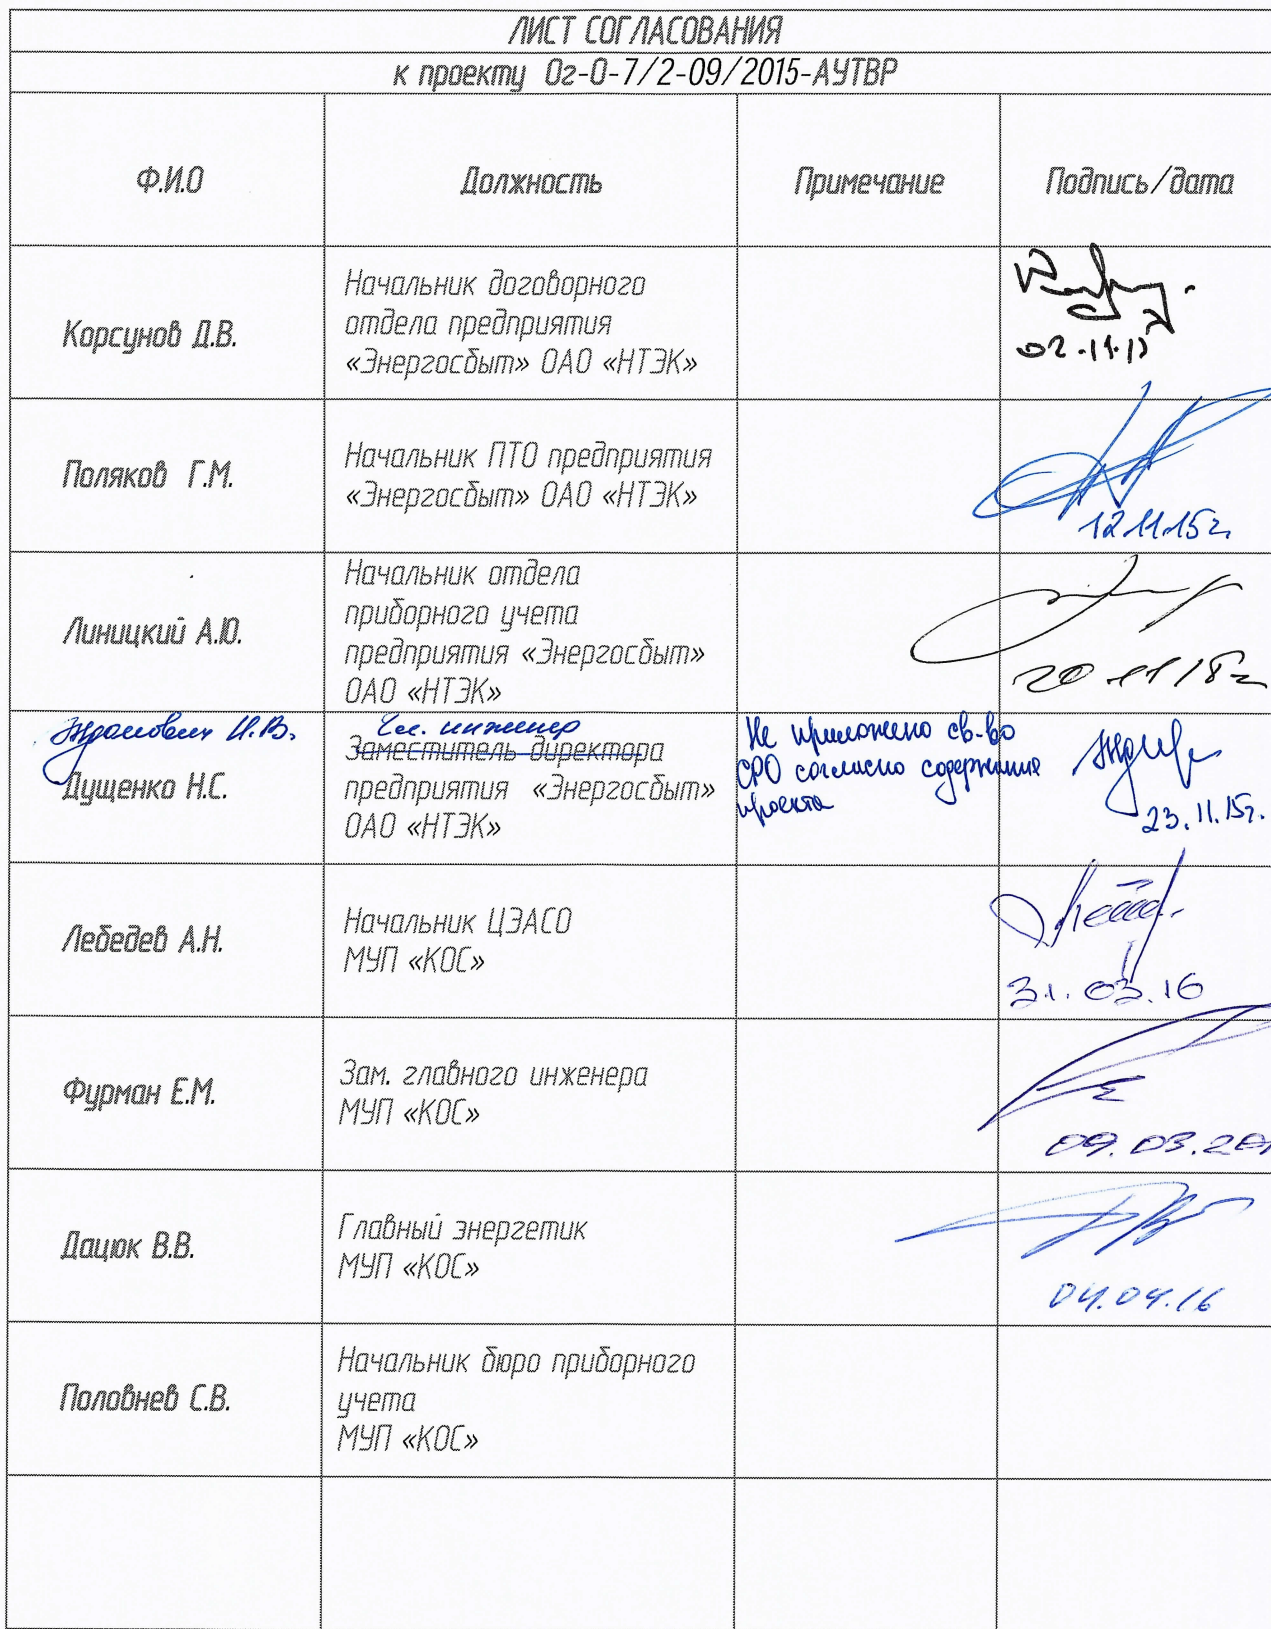 ЛИСТ СОГЛАСОВАНИЯ
к проекту Ог-О-7/2-09/2015-АУТВР
Ф.И.О
Должность
Примечание
Подпись/дата
Корсунов Д.В.
Начальник договорного
отдела предприятия
«Энергосбыт» ОАО «НТЭК»
02.11.15
Поляков Г.М.
Начальник ПТО предприятия
«Энергосбыт» ОАО «НТЭК»
12.11.15г
Линицкий А.Ю.
Начальник отдела
приборного учета
предприятия «Энергосбыт»
ОАО «НТЭК»
20 11 15г
И.В.
Дущенко Н.С.
Гл. инженер
Заместитель директора
предприятия «Энергосбыт»
ОАО «НТЭК»
Не приложено св-во
СРО согласно содержания
проекта
23.11.15г.
Лебедев А.Н.
Начальник ЦЭАСО
МУП «КОС»
31.03.16
Фурман Е.М.
Зам. главного инженера
МУП «КОС»
09.03.201
Дацюк В.В.
Главный энергетик
МУП «КОС»
04.04.16
Половнев С.В.
Начальник бюро приборного
учета
МУП «КОС»